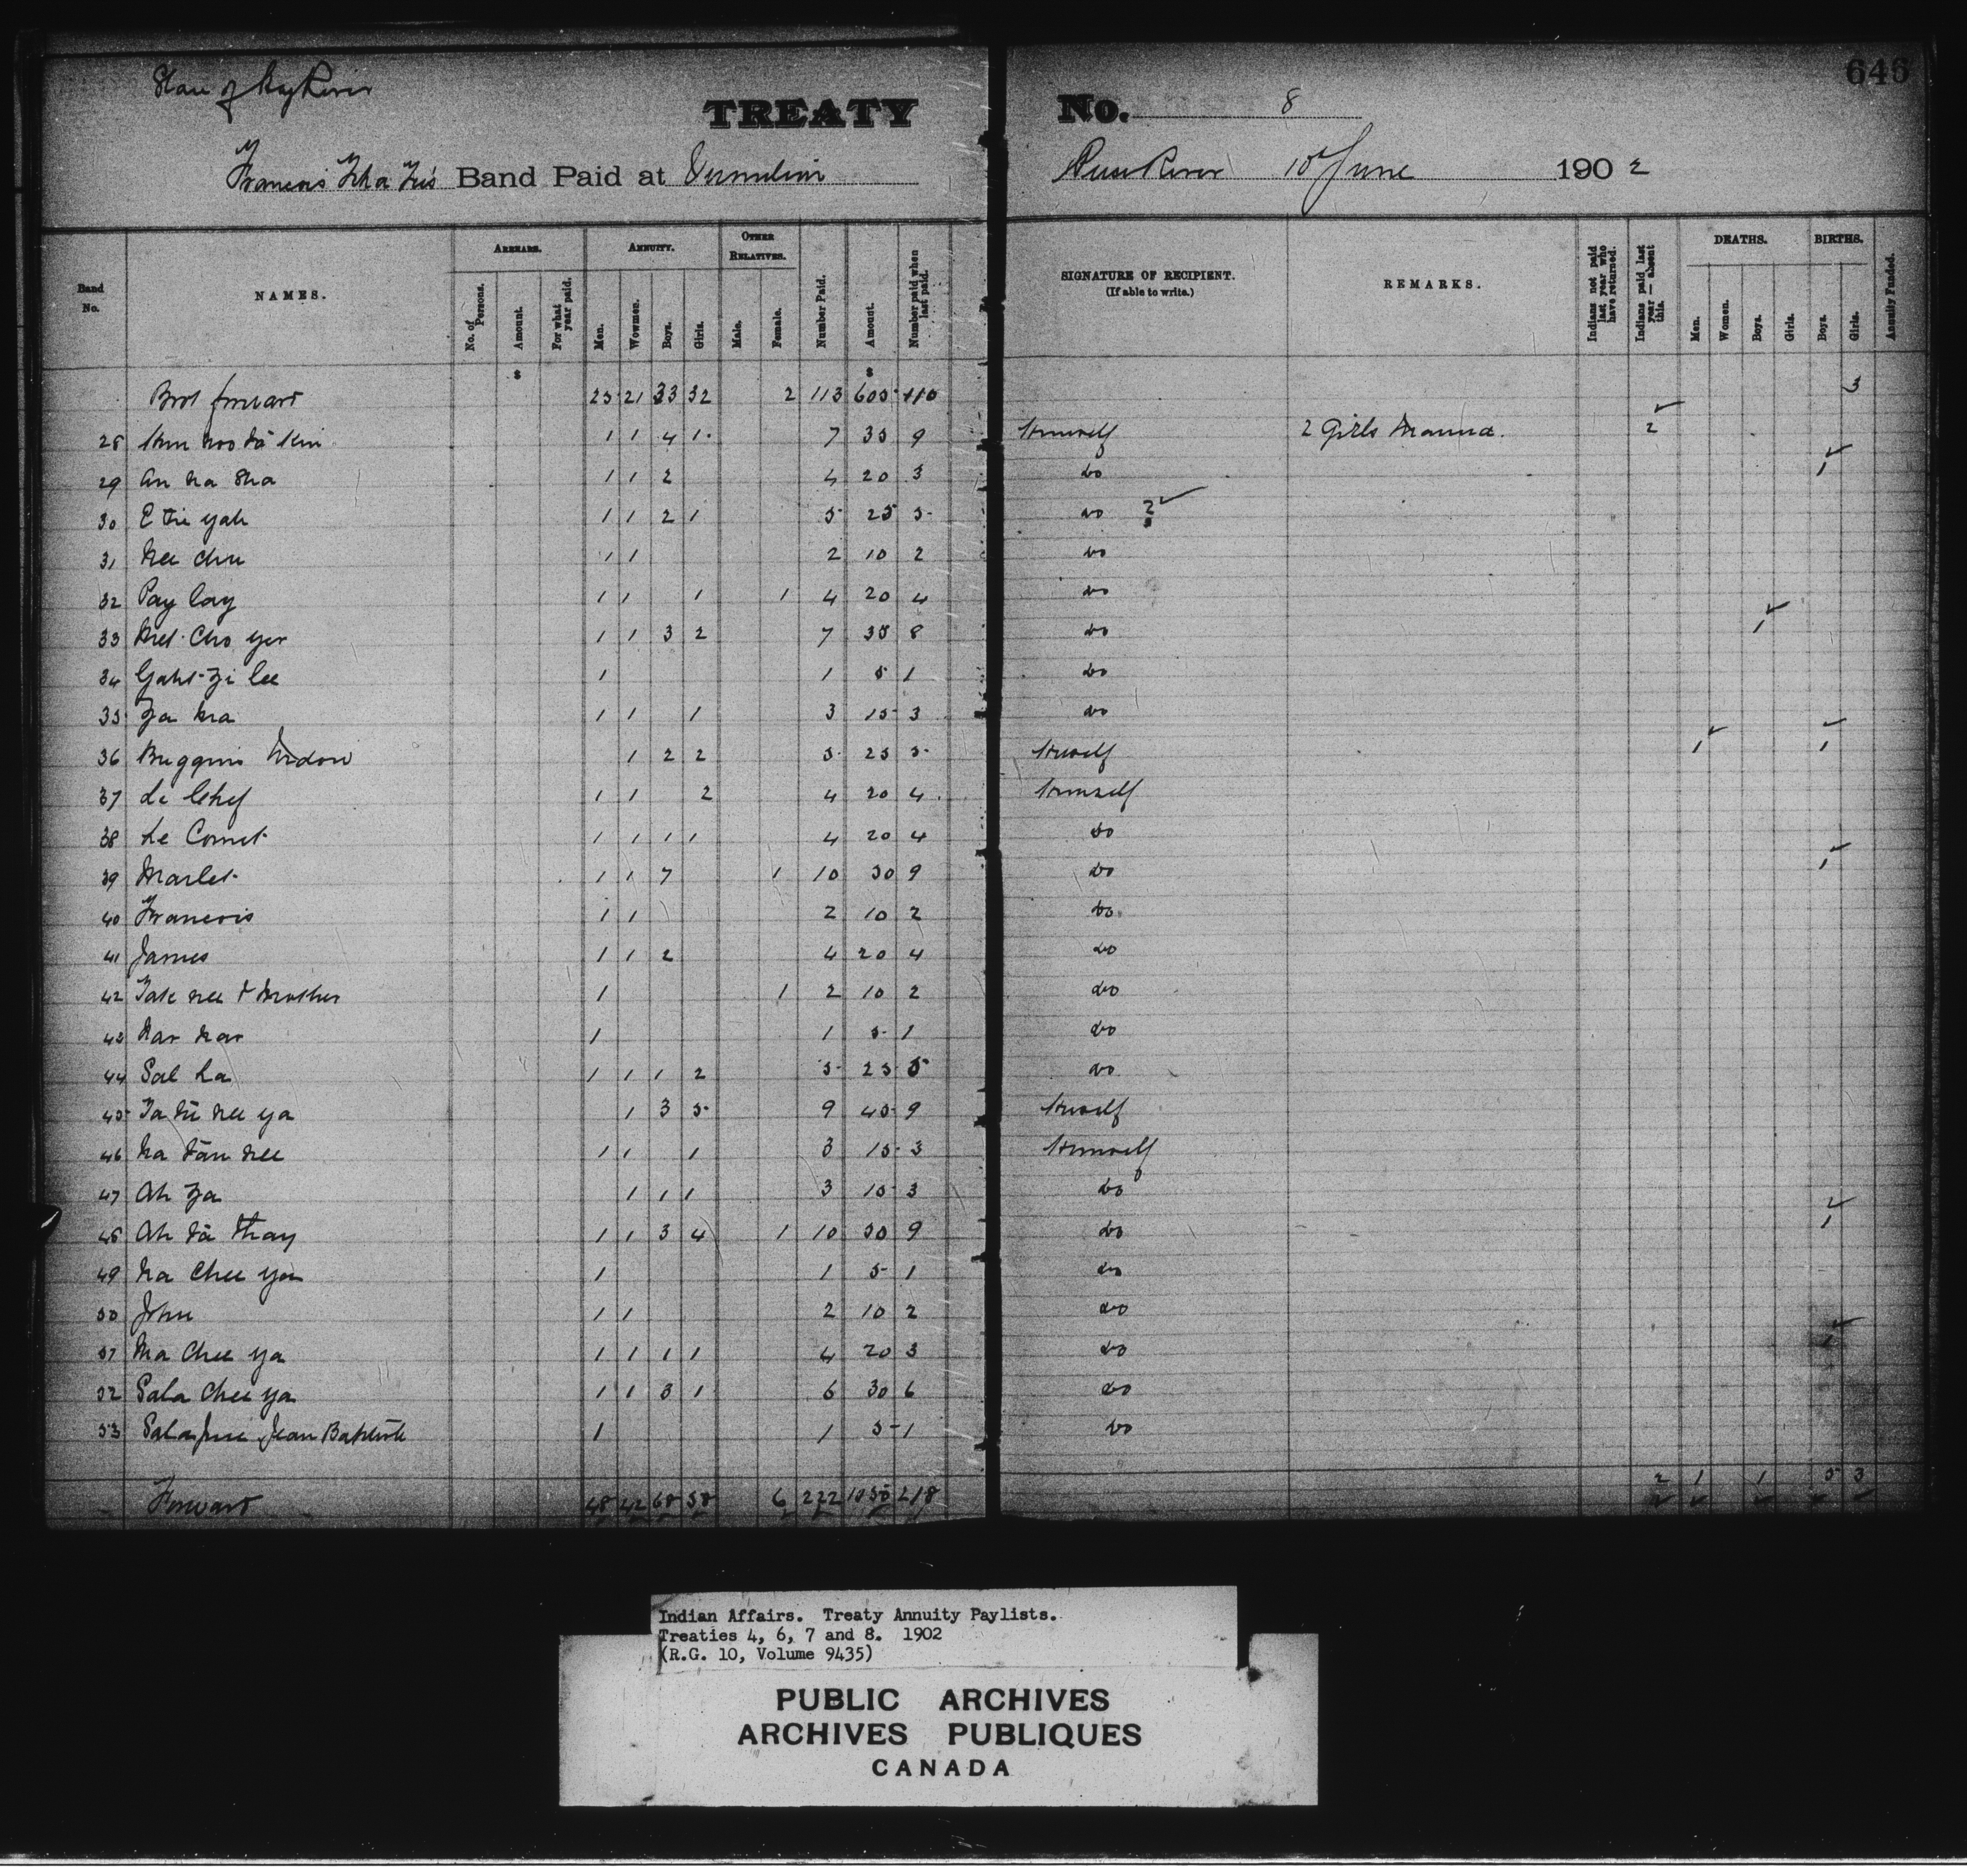 646
Slave of Hay River
TREATY No. 8
Francois Band Paid at Vermilion Peace River 10 June 1902
Band No.
NAMES.
ARREARS.
No. of Persons.
Amount.
For what year paid.
ANNUITY.
Men.
Wowmen.
Boys.
Girls.
OTHER RELATIVES.
Male.
Female.
Number Paid.
Amount.
Number paid when last paid.
SIGNATURE OF RECIPIENT.
(If able to write.)
REMARKS.
Indians not paid last year who have returned.
Indians paid last year — absent this.
DEATHS.
Men.
Women.
Boys.
Girls.
BIRTHS.
Boys.
Girls.
Annuity Funded.
$ $
Brot forward 25 21 33 32 2 113 605 110 3
28 1 1 4 1 7 35 9 Himself 2 Girls Married 2
29 An na sha 1 1 2 4 20 3 do 1
30 E tie yah 1 1 2 1 5 25 5 do ?
31 Nee chu 1 1 2 10 2 do
32 Pay lay 1 1 1 1 4 20 4 do
33 Cho yer 1 1 3 2 7 35 8 do 1
34 Gaht-zi lee 1 1 5 1 do
35 Za na 1 1 1 3 15 3 do
36 Buggins Widow 1 2 2 5 25 5 Herself 1 1
37 Le Chef 1 1 2 4 20 4 Himself
38 Le Cornet 1 1 1 1 4 20 4 do
39 Marlet 1 1 7 1 10 50 9 do 1
40 Francois 1 1 2 10 2 do
41 James 1 1 2 4 20 4 do
42 Tate nee & Mother 1 1 2 10 2 do
43 Nar nar 1 1 5 1 do
44 Sal La 1 1 1 2 5 25 5 do
45 Ta tu nee ya 1 3 5 9 45 9 Herself
46 Na tan nee 1 1 1 3 15 3 Himself
47 Ah Za 1 1 1 3 15 3 do
48 Ah ta thay 1 1 3 4 1 10 50 9 do 1
49 Na Chee ya 1 1 5 1 do
50 John 1 1 2 10 2 do
51 Ma Chee ya 1 1 1 1 4 20 3 do 1
52 Sala Chee ya 1 1 3 1 6 30 6 do
53 Jean Baptiste 1 1 5 1 do
Forward 48 42 68 58 6 222 1050 218 2 1 1 5 3
Indian Affairs. Treaty Annuity Paylists.
Treaties 4, 6, 7 and 8. 1902
(R.G. 10, Volume 9435)
PUBLIC ARCHIVES
ARCHIVES PUBLIQUES
CANADA